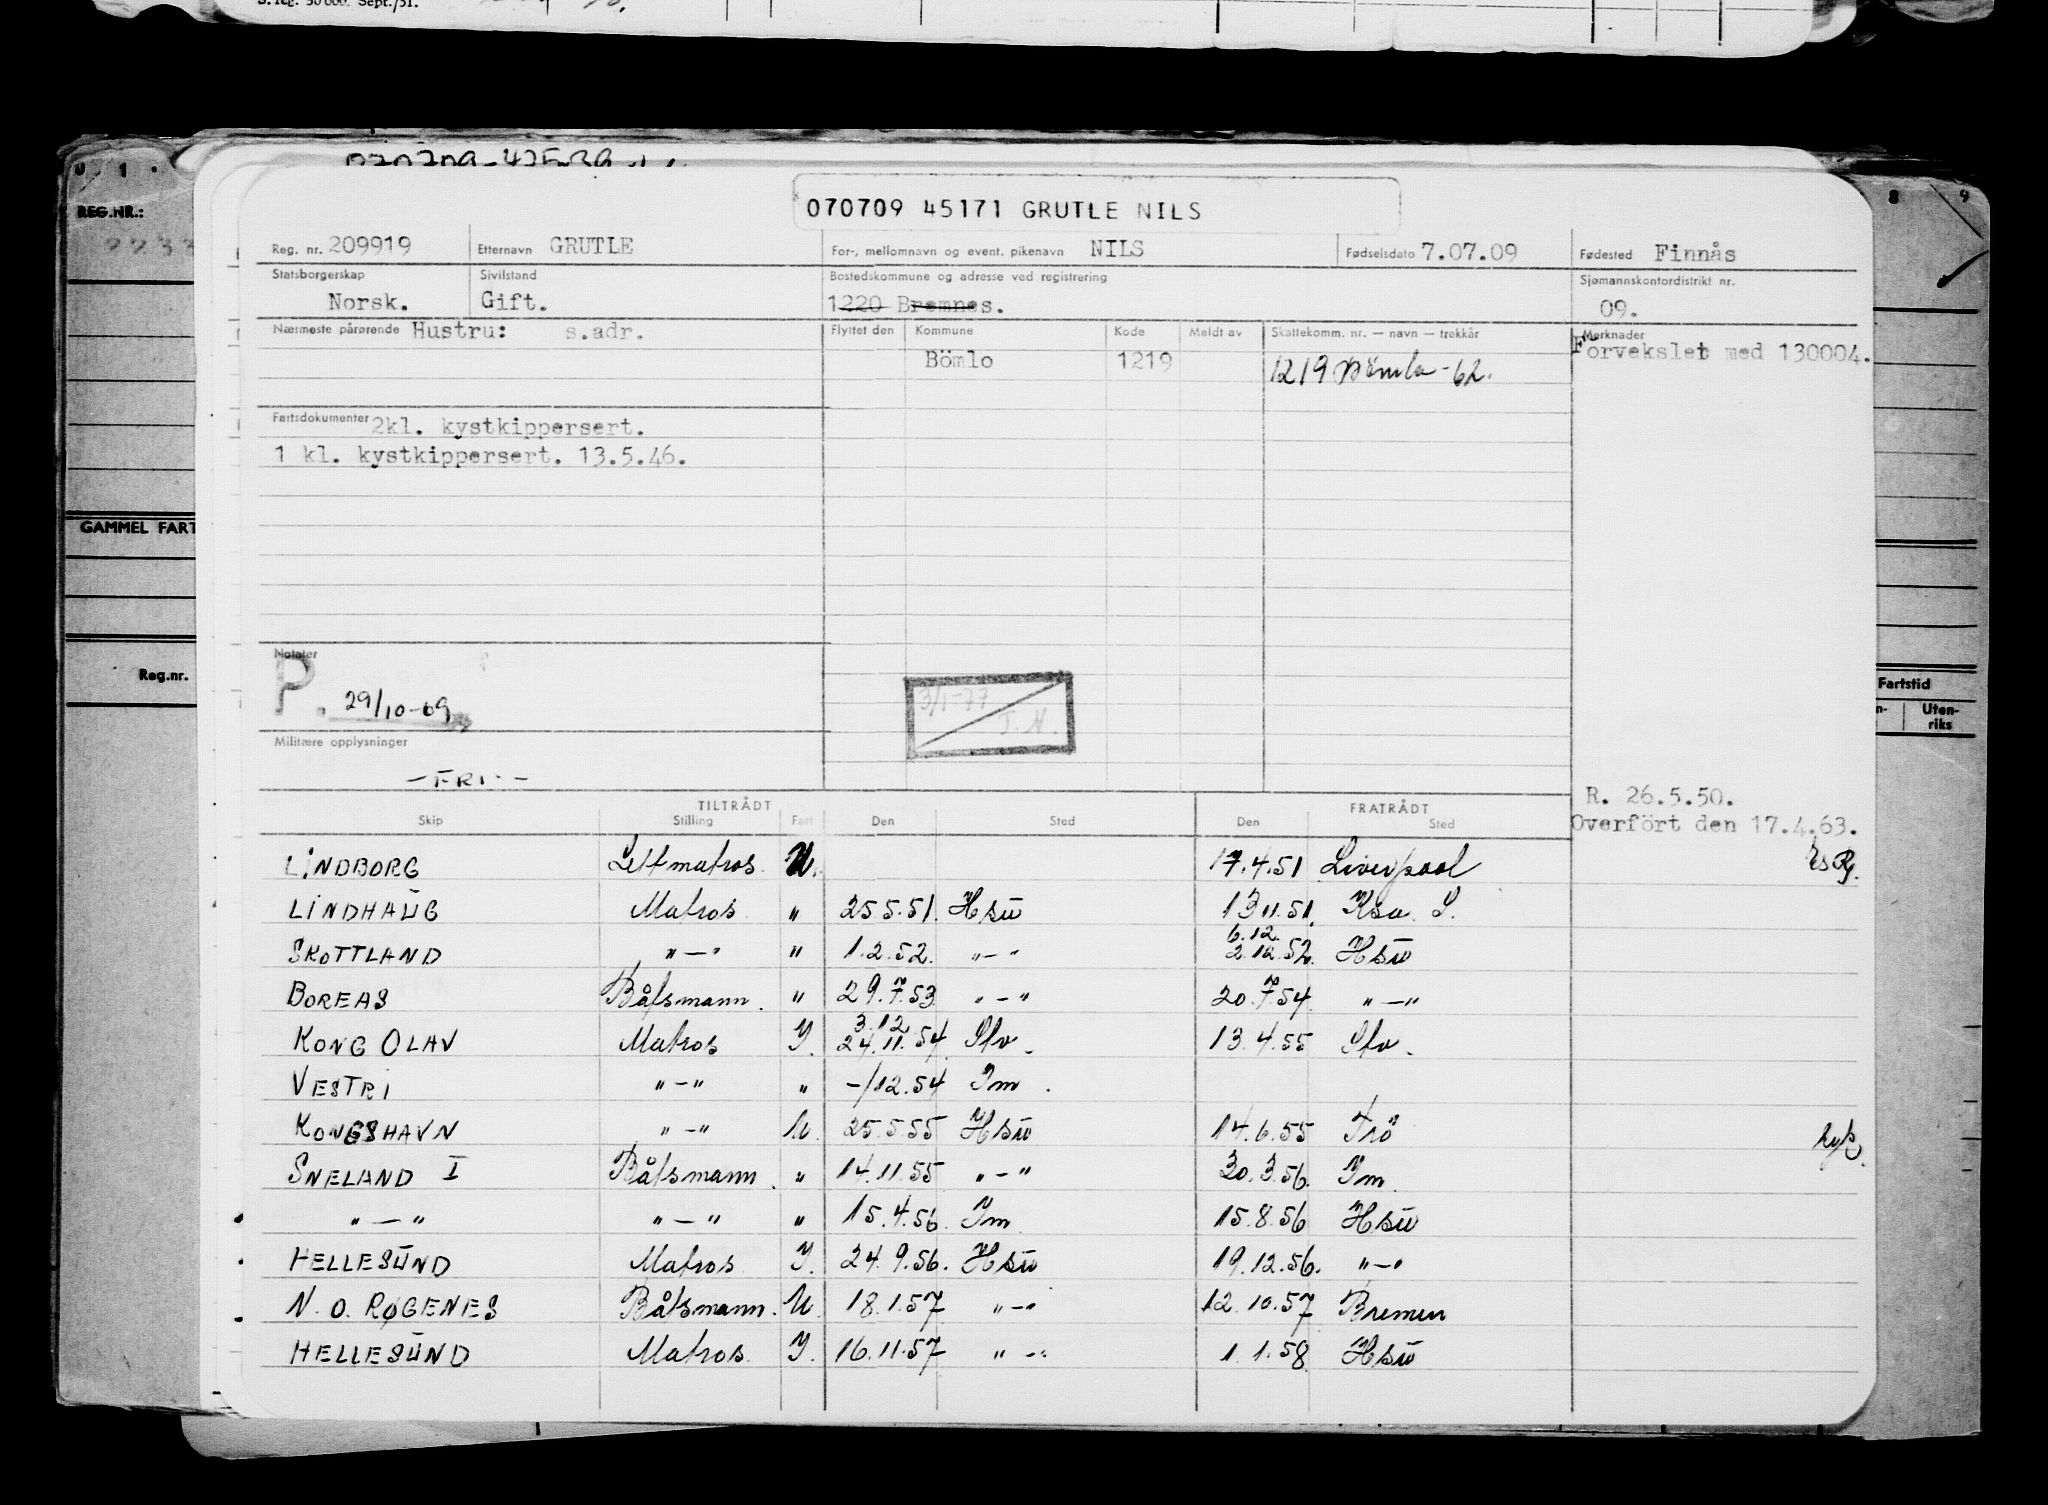 S. reg. 50 000. Sept./51.
REG.NR.:
GAMMEL FART
Reg.nr.
8 9
Fartstid
Uten-
riks
070709 45171 GRUTLE NILS
Reg. nr. 209919 Etternavn GRUTLE For-, mellomnavn og event. pikenavn NILS Fødselsdato 7.07.09 Fødested Finnås
Statsborgerskap Sivilstand Bostedskommune og adresse ved registrering Sjømannskontordistrikt nr.
Norsk. Gift. 1220 Bremnes. 09.
Nærmeste pårørende Hustru: s.adr. Flyttet den Kommune Kode Meldt av Skattekomm. nr. — navn — trekkår Merknader
Bömlo 1219 1219 Bömlo -62. Forvekslet med 130004.
Fartsdokumenter 2kl. kystkippersert.
1 kl. kystkippersert. 13.5.46.
Notater
P. 29/10-69
3/1-77
T.N.
Militære opplysninger
-FRI-
R. 26.5.50.
Overfört den 17.4.63.
TILTRÅDT FRATRÅDT
Skip Stilling Fart Den Sted Den Sted
LINDBORG Lettmatros U. 17.4.51 Liverpool
LINDHAUG Matros " 25.5.51. Hsu 13.11.51. Ksa. S.
6.12
SKOTTLAND "-" " 1.2.52. "-" 2.12.52. Hsu
BOREAS Båtsmann. " 29.7.53 "-" 20.7.54. "-"
3.12
KONG OLAV Matros Y. 24.11.54 Stv. 13.4.55 Stv.
VESTRI "-" " -/12.54 Im.
KONGSHAVN "-" U. 25.5.55 Hsu 14.6.55 Trö
SNELAND I Båtsmann. " 14.11.55 "-" 30.3.56. Im.
"-" "-" " 15.4.56. Im 15.8.56 Hsu
HELLESUND Matros Y. 24.9.56. Hsu 19.12.56. "-"
N. O. RØGENES Båtsmann. U. 18.1.57 "-" 12.10.57 Bremen
HELLESUND Matros Y. 16.11.57 "-" 1.1.58 Hsu